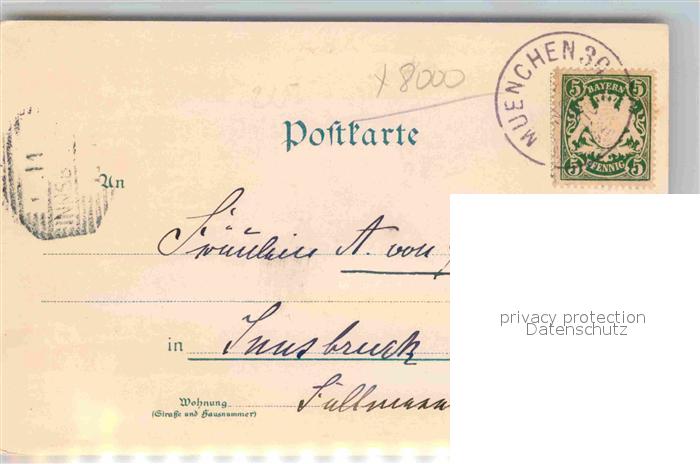 x 8000
MUENCHEN 39
5 BAYERN 5
5 PFENNIG 5
Postkarte
An
INNSB
Fräulein A. von
in Innsbruck
Wohnung
(Straße und Hausnummer)
privacy protection
Datenschutz